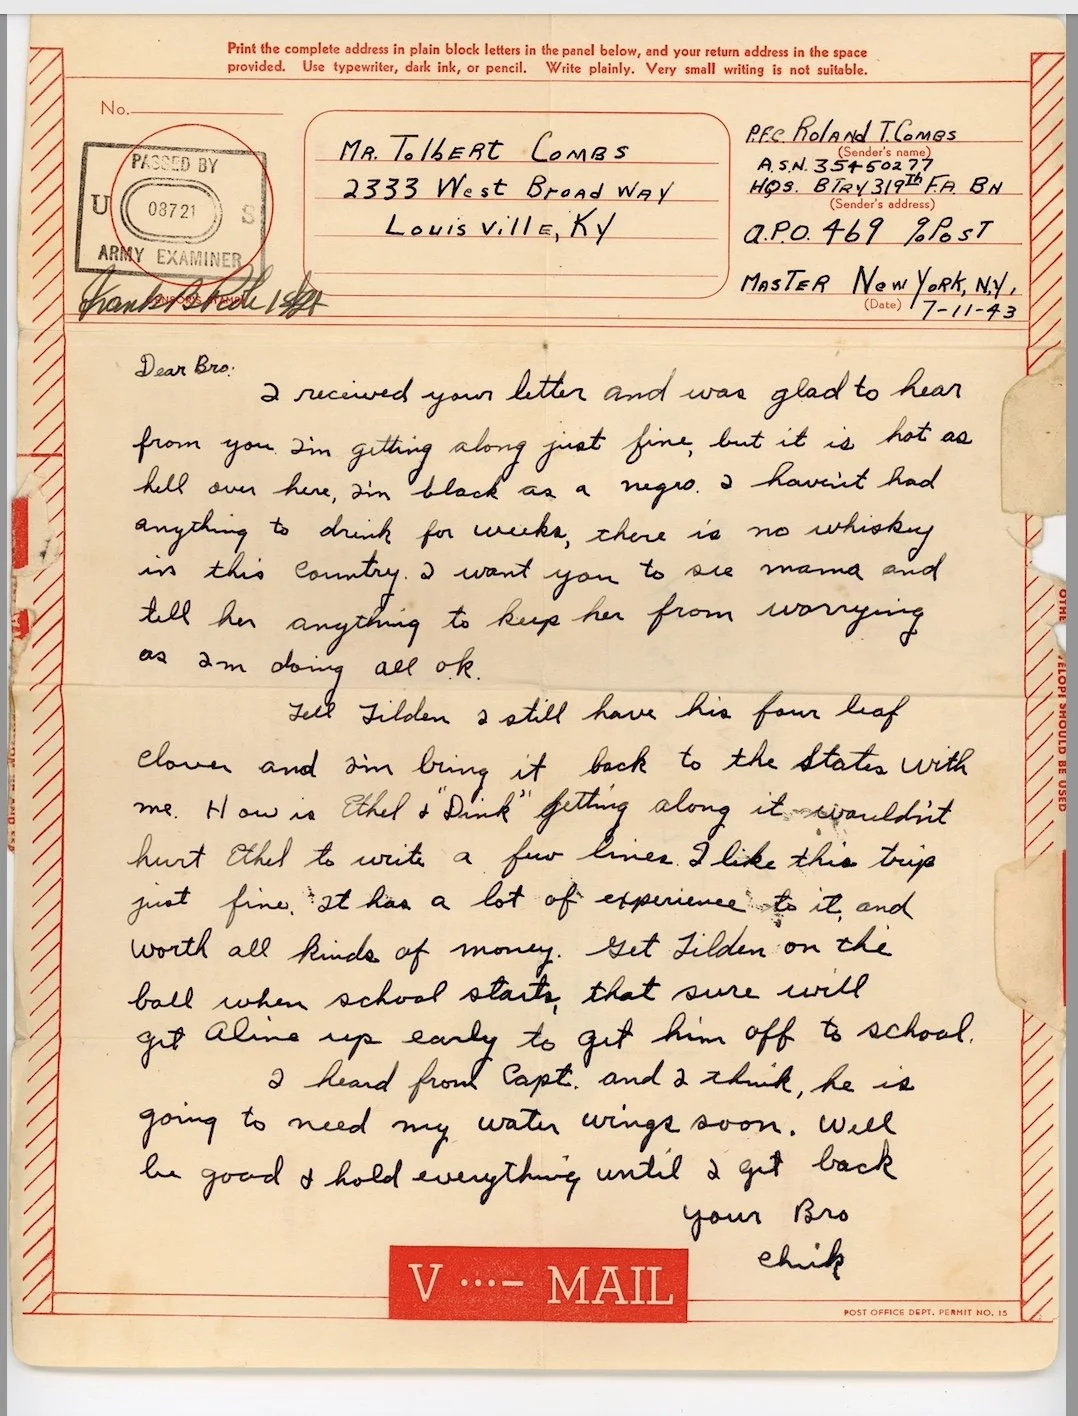 Print the complete address in plain block letters in the panel below, and your return address in the space
provided. Use typewriter, dark ink, or pencil. Write plainly. Very small writing is not suitable.
No.
PASSED BY
U 08721 S
ARMY EXAMINER
Mr. Tolbert Combs
2333 West Broadway
Louisville, Ky
P.F.C. Roland T. Combs
(Sender's name)
A.S.N. 35450277
Hqs. Btry 319th F.A. Bn
(Sender's address)
A.P.O. 469 % Post
Master New York, N.Y.,
(Date) 7-11-43
Dear Bro:
I received your letter and was glad to hear
from you. I'm getting along just fine, but it is hot as
hell over here, I'm black as a negro. I haven't had
anything to drink for weeks, there is no whiskey
in this Country. I want you to see mama and
tell her anything to keep her from worrying
as I'm doing all o.k.
Tell Tilden I still have his four leaf
clover and I'm bring it back to the States with
me. How is Ethel & "Dink" getting along it wouldn't
hurt Ethel to write a few lines. I like this trip
just fine. It has a lot of experience to it, and
worth all kinds of money. Get Tilden on the
ball when school starts, that sure will
get Aline up early to get him off to school.
I heard from Capt. and I think, he is
going to need my water wings soon. Well
be good & hold everything until I get back
your Bro
Chick
V ···– MAIL
POST OFFICE DEPT. PERMIT NO. 15